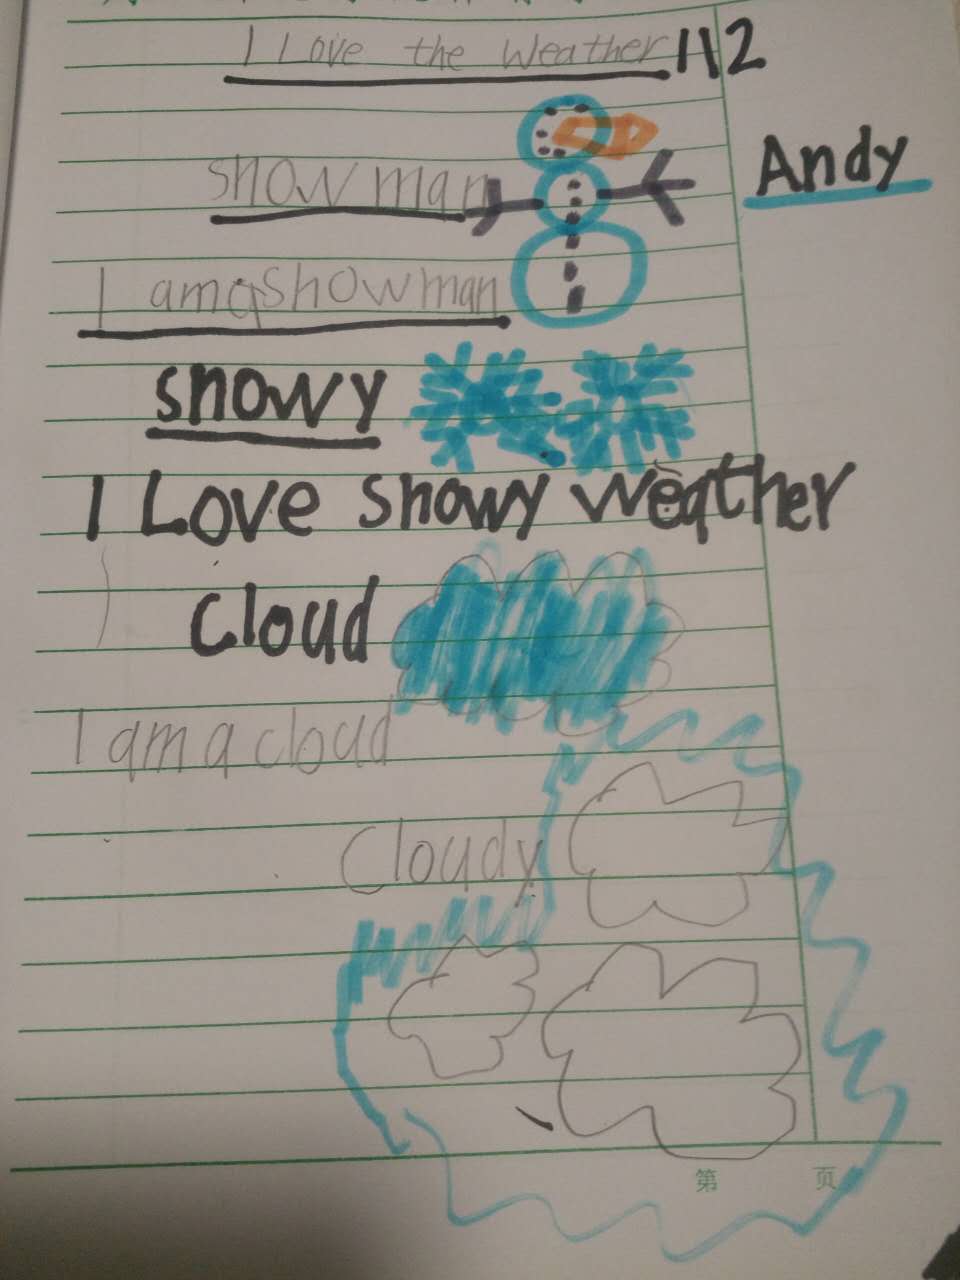 I Love the weather 112
Andy
snow man
I am a snow man
snowy
I Love snowy weather
cloud
I am a cloud
Cloudy
第 页